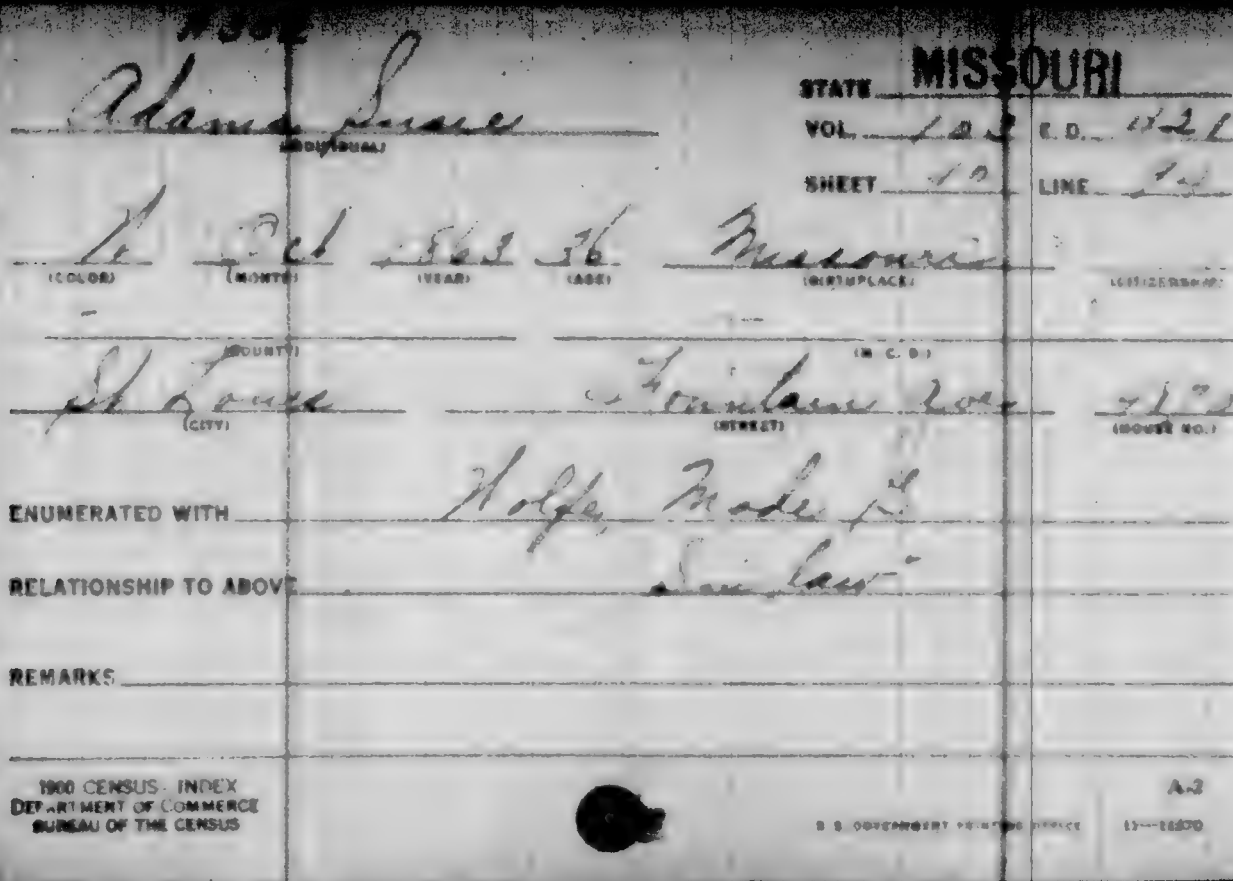 Adams Susie
(INDIVIDUAL)
STATE MISSOURI
VOL. E. D.
SHEET 10 LINE
W Oct 1863 36 Missouri
(COLOR) (MONTH) (YEAR) (AGE) (BIRTHPLACE) (CITIZENSHIP)
(COUNTY) (M. C. D.)
St Louis Fountain Ave
(CITY) (STREET) (HOUSE NO.)
ENUMERATED WITH Wolfe, Mode
RELATIONSHIP TO ABOVE S in law
REMARKS
1900 CENSUS - INDEX
DEPARTMENT OF COMMERCE
BUREAU OF THE CENSUS
A-2
U. S. GOVERNMENT PRINTING OFFICE